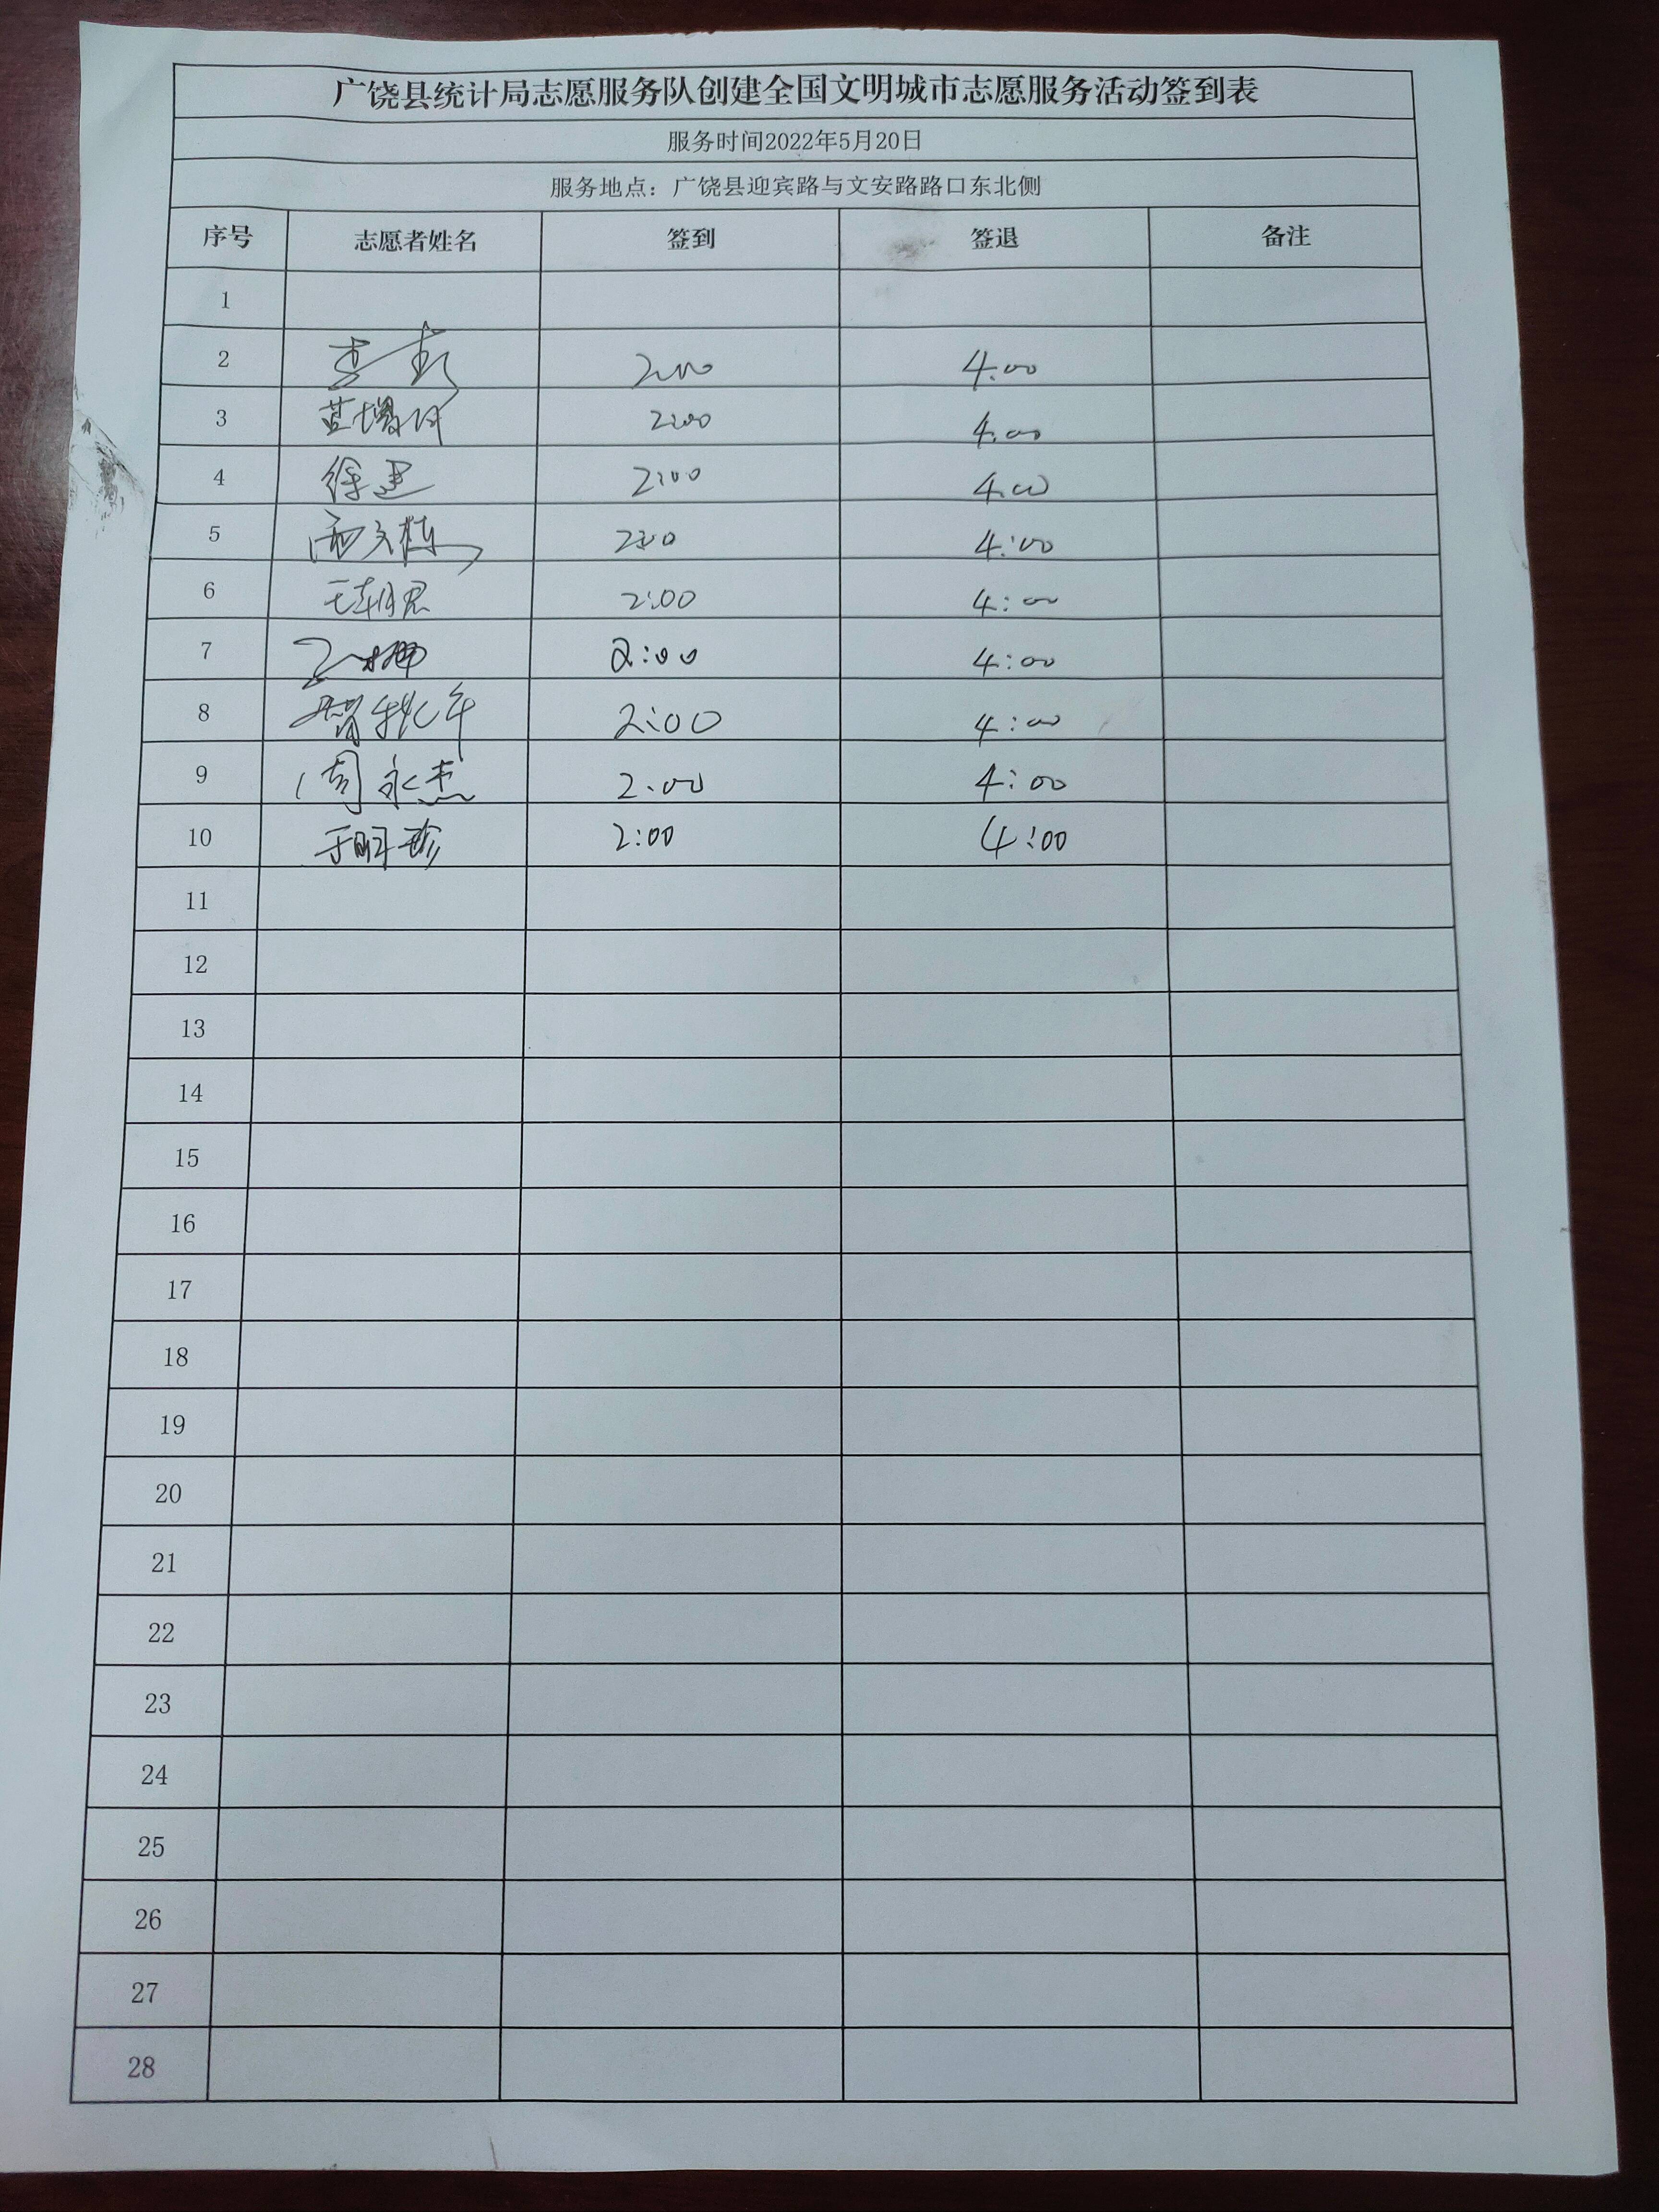 广饶县统计局志愿服务队创建全国文明城市志愿服务活动签到表
服务时间2022年5月20日
服务地点：广饶县迎宾路与文安路路口东北侧
序号 志愿者姓名 签到 签退 备注
1
2 2:00 4:00
3 2:00 4:00
4 徐建 2:00 4:00
5 2:00 4:00
6 2:00 4:00
7 2:00 4:00
8 2:00 4:00
9 周永杰 2:00 4:00
10 2:00 4:00
11
12
13
14
15
16
17
18
19
20
21
22
23
24
25
26
27
28